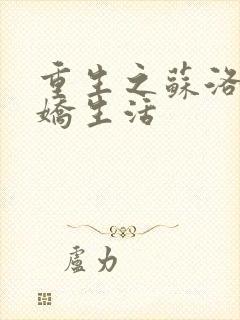 重生之蘇洛
嬌生活
盧力